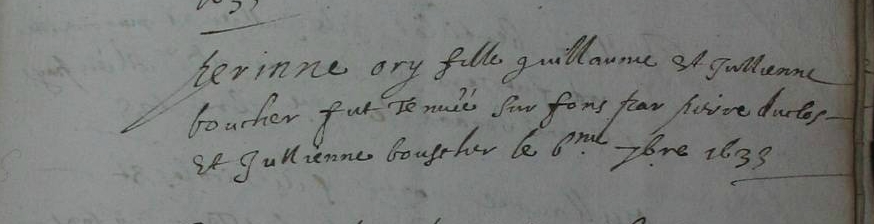 1633
perinne ory fille guillaume et Jullienne
boucher fut Tenuë sur fons par pierre duclos
et Jullienne bouscher le 6me 7bre 1633